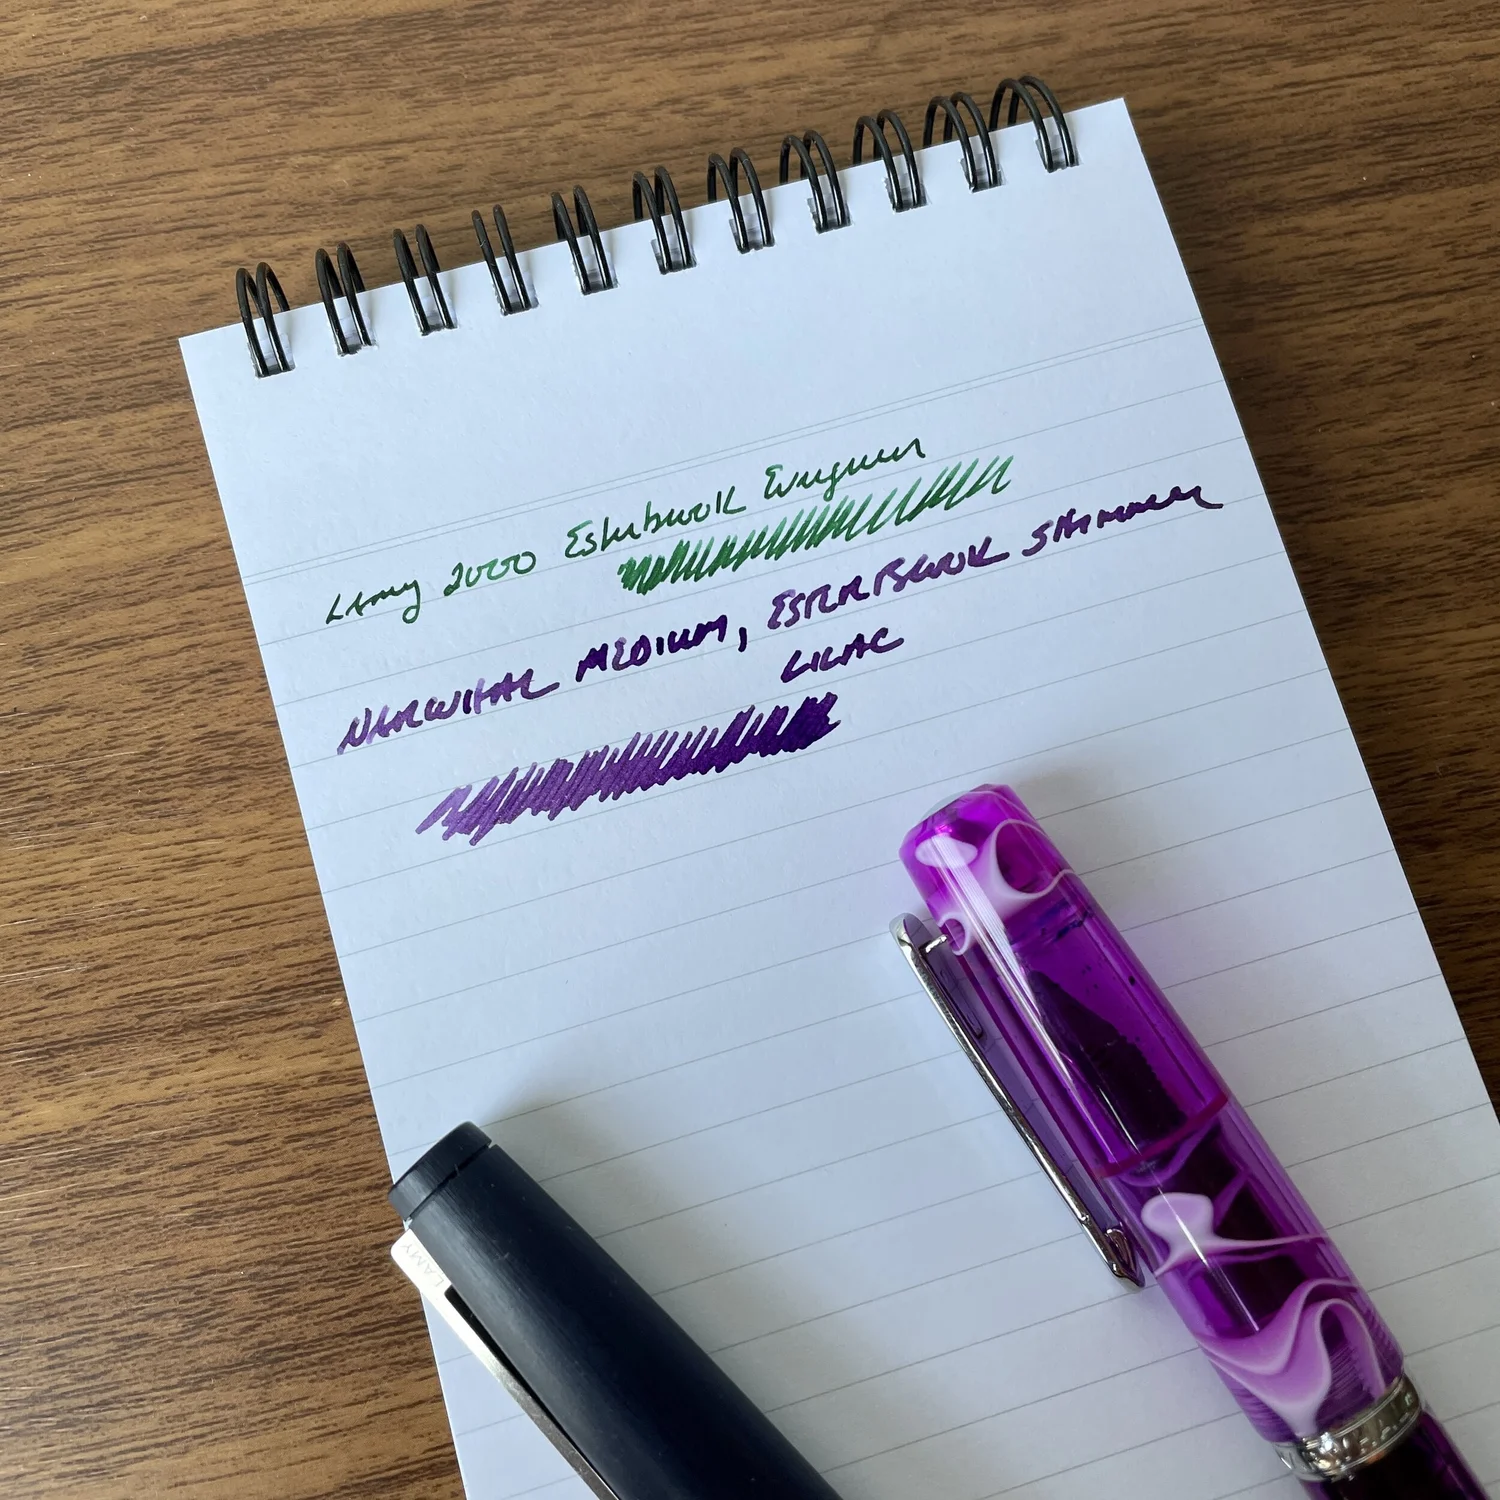 Lamy 2000 Esterbrook Evergreen
NARWHAL MEDIUM, ESTERBROOK SHIMMER
LILAC
LAMY